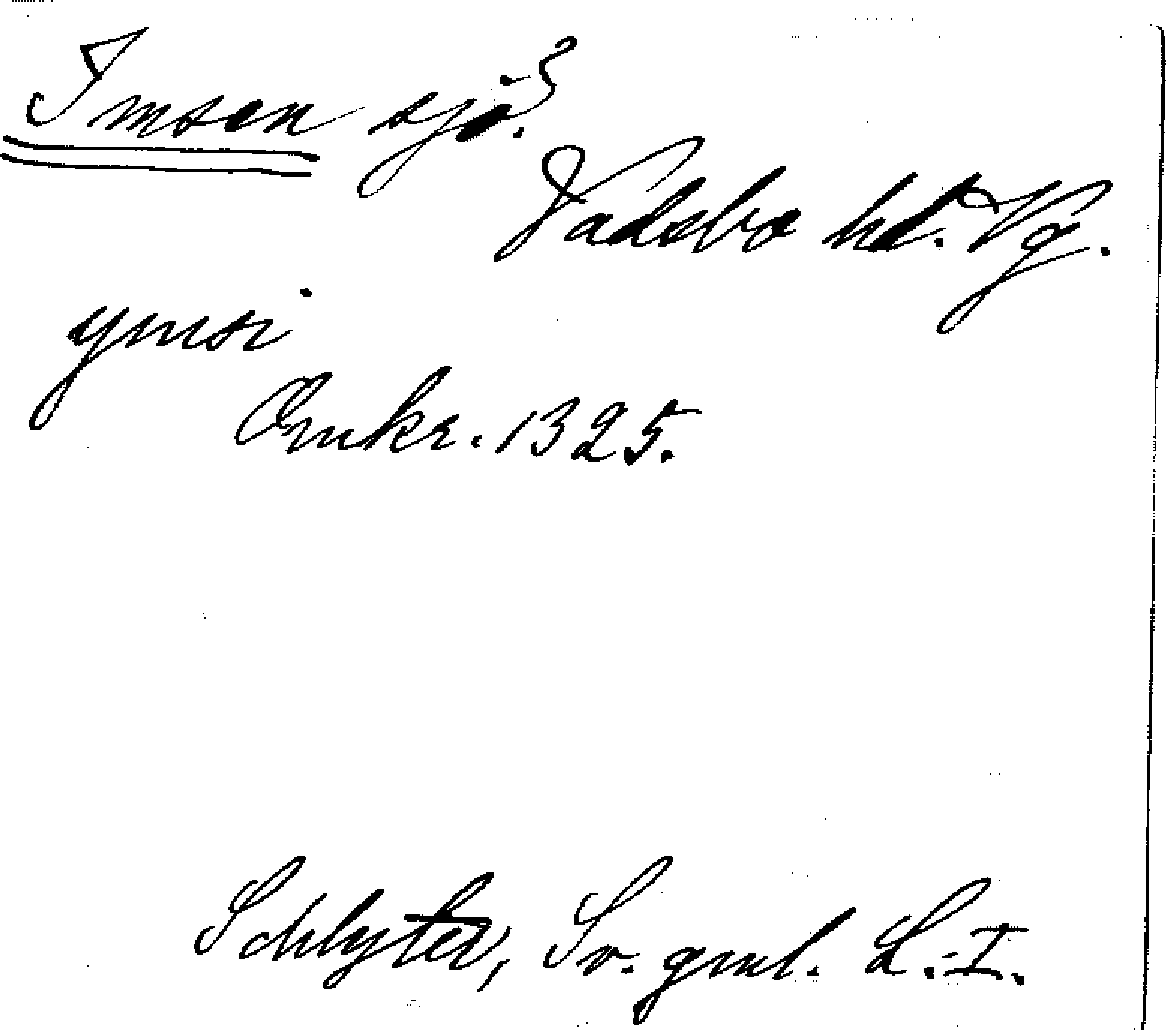 Imsen sjö?
Vadsbo hd. Vg.
ymsi
Omkr. 1325.
Schlyter, Sv. gml. L. I.